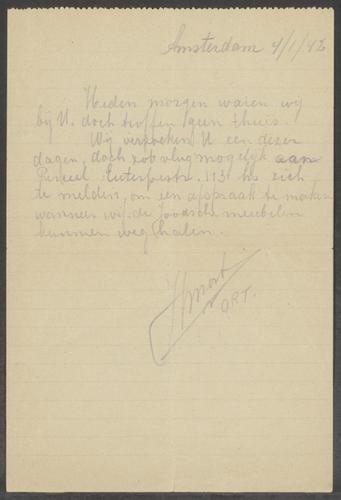 Amsterdam 4/1/43
Heden morgen waren wij
bij U. doch troffen geen thuis.
Wij verzoeken U een dezer
dagen, doch zoo vlug mogelijk aan
Perceel Euterpestr. 113 hs zich
te melden, om een afspraak te maken
wanneer wij de Joodsche meubelen
kunnen weg halen.
ORT.